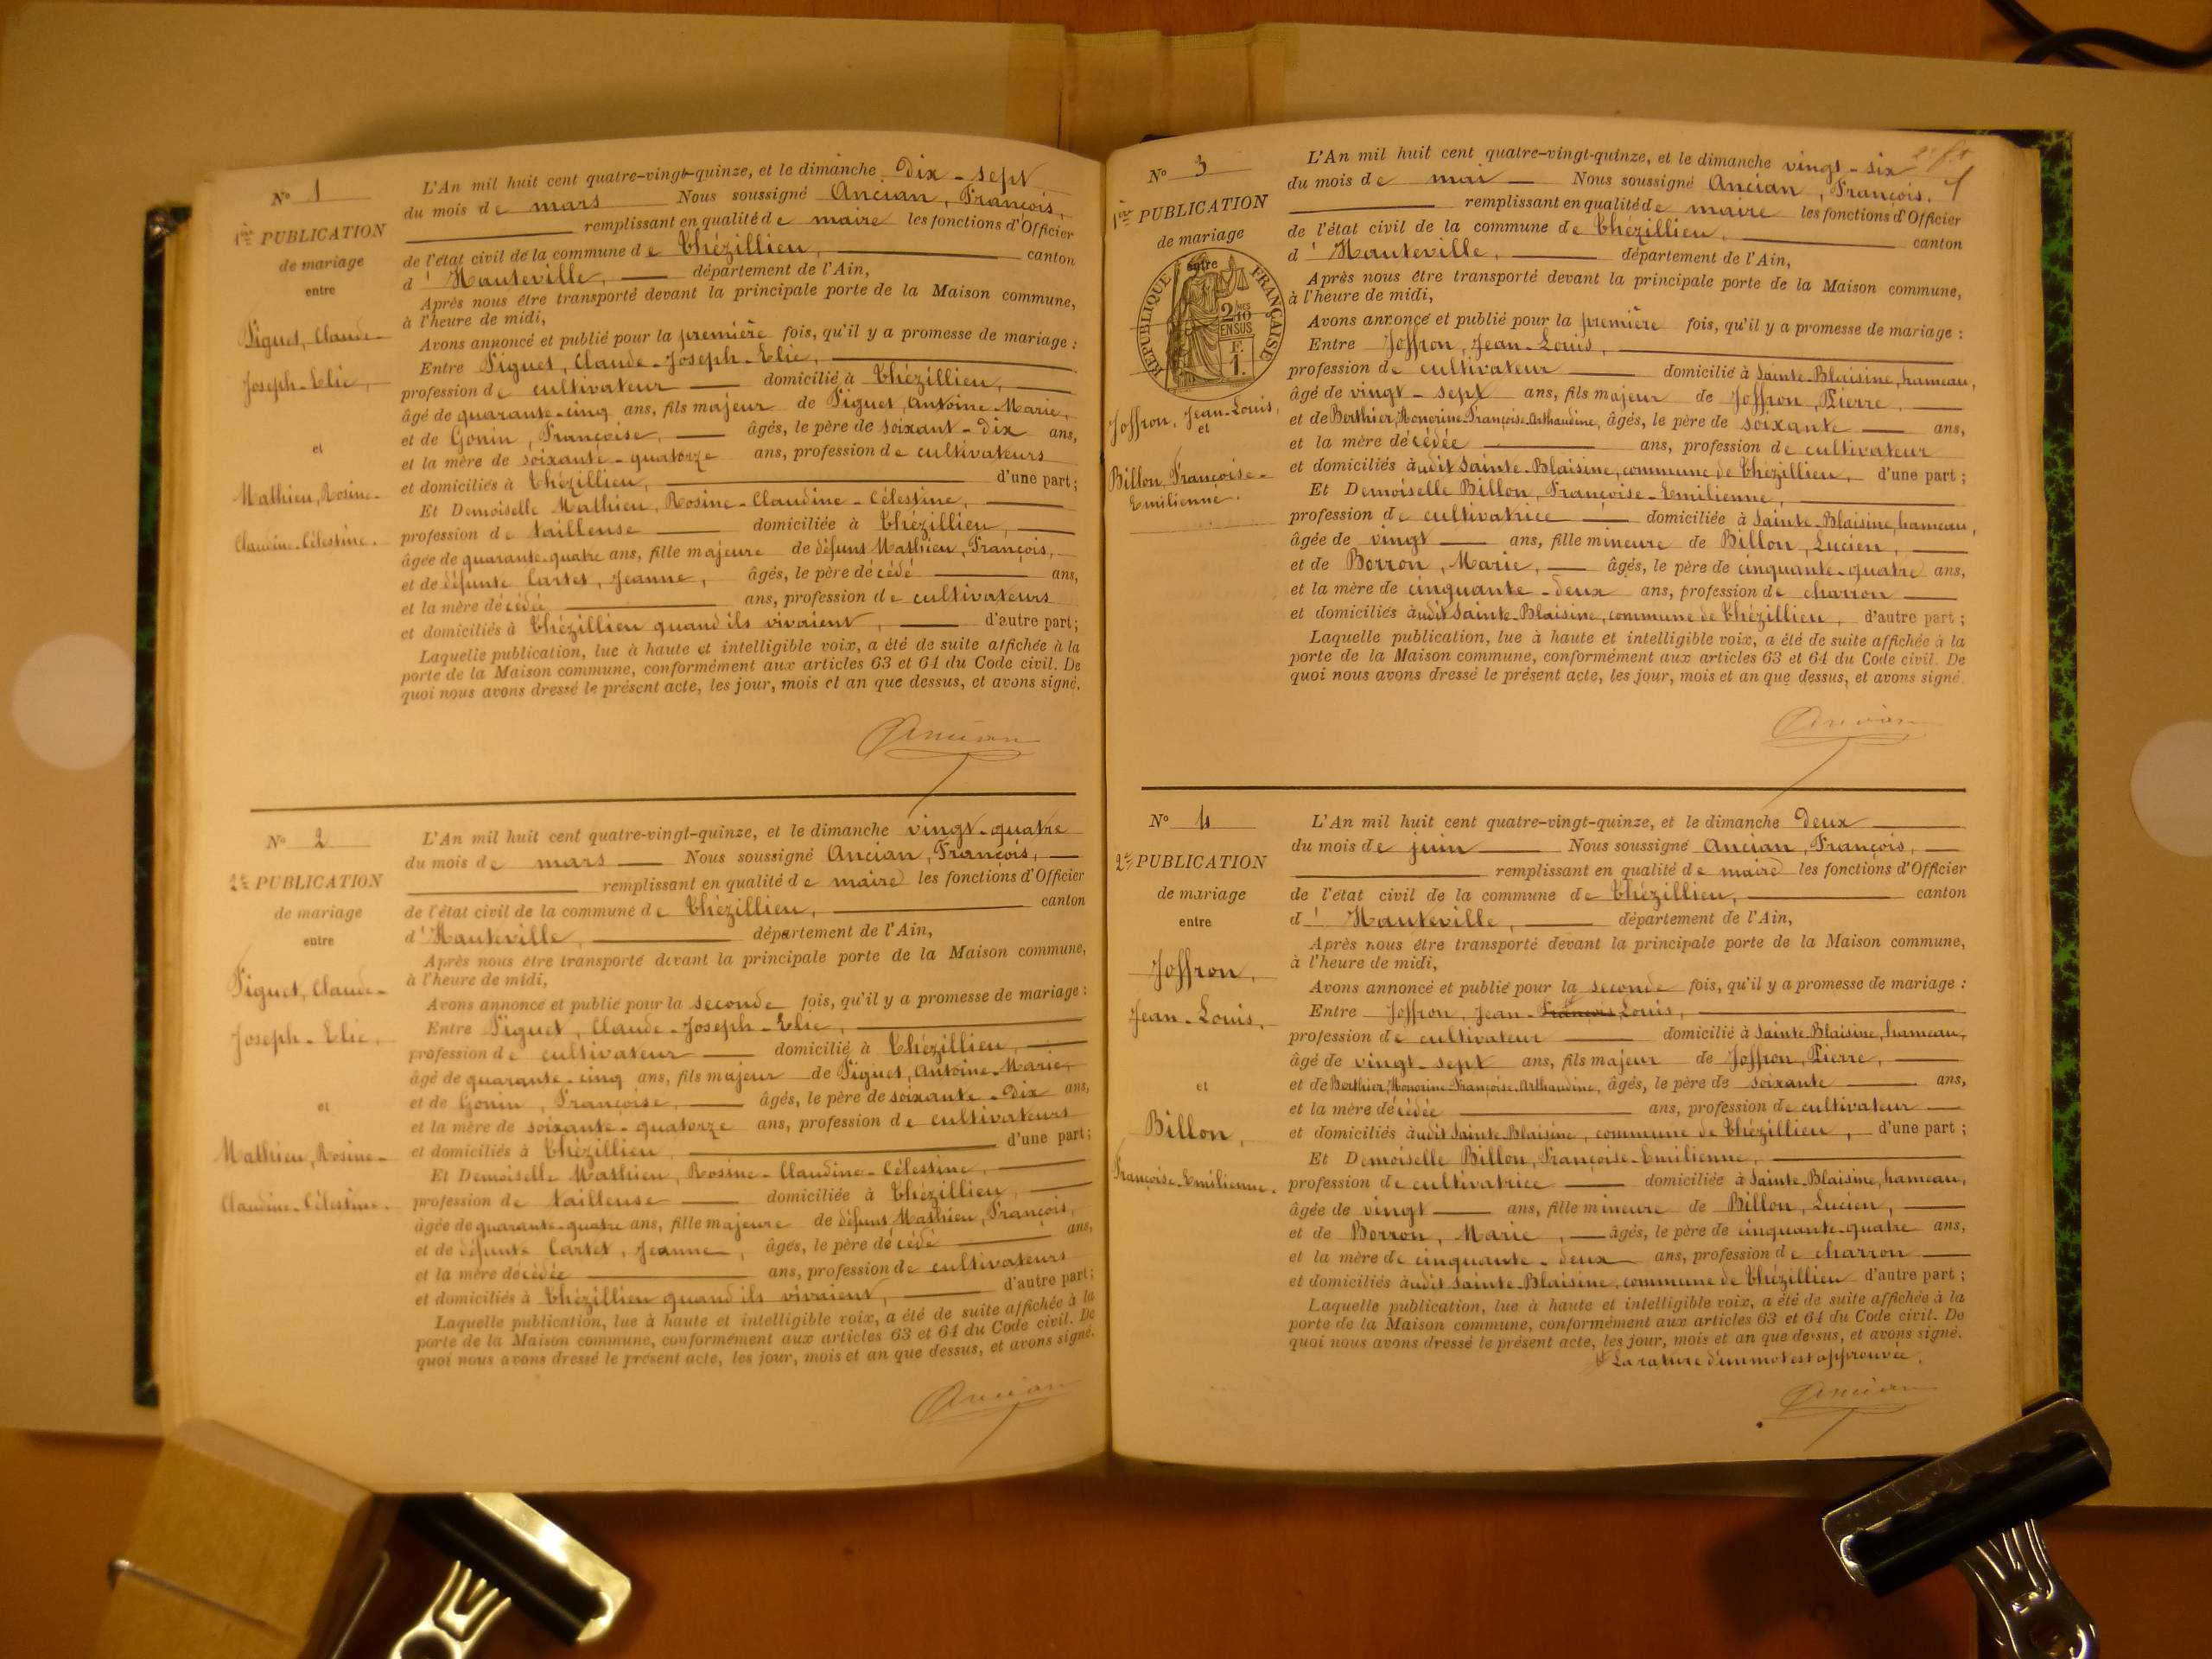 N° 1
1ère PUBLICATION
de mariage
entre
Piguet, Claude-
Joseph-Elie,
et
Mathieu, Rosine-
Claudine-Célestine.
L'An mil huit cent quatre-vingt-quinze, et le dimanche dix-sept
du mois de mars Nous soussigné Ancian, François,
remplissant en qualité de maire les fonctions d'Officier
de l'état civil de la commune de Thézillieu, canton
d'Hauteville, département de l'Ain,
Après nous être transporté devant la principale porte de la Maison commune,
à l'heure de midi,
Avons annoncé et publié pour la première fois, qu'il y a promesse de mariage :
Entre Piguet, Claude-Joseph-Elie,
profession de cultivateur domicilié à Thézillieu,
âgé de quarante-cinq ans, fils majeur de Piguet, Antoine-Marie,
et de Gonin, Françoise, âgés, le père de soixant-dix ans,
et la mère de soixante-quatorze ans, profession de cultivateurs
et domiciliés à Thézillieu, d'une part ;
Et Demoiselle Mathieu, Rosine-Claudine-Célestine,
profession de tailleuse domiciliée à Thézillieu,
âgée de quarante-quatre ans, fille majeure de défunt Mathieu, François,
et de défunte Cartet, Jeanne, âgés, le père décédé ans,
et la mère décédée ans, profession de cultivateurs
et domiciliés à Thézillieu quand ils vivaient, d'autre part ;
Laquelle publication, lue à haute et intelligible voix, a été de suite affichée à la
porte de la Maison commune, conformément aux articles 63 et 64 du Code civil. De
quoi nous avons dressé le présent acte, les jour, mois et an que dessus, et avons signé.
Ancian
N° 2
2e PUBLICATION
de mariage
entre
Piguet, Claude-
Joseph-Elie,
et
Mathieu, Rosine-
Claudine-Célestine.
L'An mil huit cent quatre-vingt-quinze, et le dimanche vingt-quatre
du mois de mars Nous soussigné Ancian, François,
remplissant en qualité de maire les fonctions d'Officier
de l'état civil de la commune de Thézillieu, canton
d'Hauteville, département de l'Ain,
Après nous être transporté devant la principale porte de la Maison commune,
à l'heure de midi,
Avons annoncé et publié pour la seconde fois, qu'il y a promesse de mariage :
Entre Piguet, Claude-Joseph-Elie,
profession de cultivateur domicilié à Thézillieu,
âgé de quarante-cinq ans, fils majeur de Piguet, Antoine-Marie,
et de Gonin, Françoise, âgés, le père de soixante-dix ans,
et la mère de soixante-quatorze ans, profession de cultivateurs
et domiciliés à Thézillieu, d'une part ;
Et Demoiselle Mathieu, Rosine-Claudine-Célestine,
profession de tailleuse domiciliée à Thézillieu,
âgée de quarante-quatre ans, fille majeure de défunt Mathieu, François,
et de défunte Cartet, Jeanne, âgés, le père décédé ans,
et la mère décédée ans, profession de cultivateurs
et domiciliés à Thézillieu quand ils vivaient, d'autre part ;
Laquelle publication, lue à haute et intelligible voix, a été de suite affichée à la
porte de la Maison commune, conformément aux articles 63 et 64 du Code civil. De
quoi nous avons dressé le présent acte, les jour, mois et an que dessus, et avons signé.
Ancian
N° 3
1ère PUBLICATION
de mariage
entre
RÉPUBLIQUE FRANÇAISE
2/10 EN SUS
F. 1.
Joffron, Jean-Louis,
et
Billon, Françoise-
Emilienne.
L'An mil huit cent quatre-vingt-quinze, et le dimanche vingt-six
du mois de mai Nous soussigné Ancian, François,
remplissant en qualité de maire les fonctions d'Officier
de l'état civil de la commune de Thézillieu, canton
d'Hauteville, département de l'Ain,
Après nous être transporté devant la principale porte de la Maison commune,
à l'heure de midi,
Avons annoncé et publié pour la première fois, qu'il y a promesse de mariage :
Entre Joffron, Jean-Louis,
profession de cultivateur domicilié à Sainte-Blaisine, hameau,
âgé de vingt-sept ans, fils majeur de Joffron, Pierre,
et de Berthier, Honorine-Françoise-Arthaudine, âgés, le père de soixante ans,
et la mère décédée ans, profession de cultivateur
et domiciliés àudit Sainte-Blaisine, commune de Thézillieu, d'une part ;
Et Demoiselle Billon, Françoise-Emilienne,
profession de cultivatrice domiciliée à Sainte-Blaisine, hameau,
âgée de vingt ans, fille mineure de Billon, Lucien,
et de Borron, Marie, âgés, le père de cinquante-quatre ans,
et la mère de cinquante-deux ans, profession de charron
et domiciliés àudit Sainte-Blaisine, commune de Thézillieu, d'autre part ;
Laquelle publication, lue à haute et intelligible voix, a été de suite affichée à la
porte de la Maison commune, conformément aux articles 63 et 64 du Code civil. De
quoi nous avons dressé le présent acte, les jour, mois et an que dessus, et avons signé.
Ancian
N° 4
2e PUBLICATION
de mariage
entre
Joffron,
Jean-Louis,
et
Billon,
Françoise-Emilienne.
L'An mil huit cent quatre-vingt-quinze, et le dimanche deux
du mois de juin Nous soussigné Ancian, François,
remplissant en qualité de maire les fonctions d'Officier
de l'état civil de la commune de Thézillieu, canton
d'Hauteville, département de l'Ain,
Après nous être transporté devant la principale porte de la Maison commune,
à l'heure de midi,
Avons annoncé et publié pour la seconde fois, qu'il y a promesse de mariage :
Entre Joffron, Jean-François Louis,
profession de cultivateur domicilié à Sainte-Blaisine, hameau,
âgé de vingt-sept ans, fils majeur de Joffron, Pierre,
et de Berthier, Honorine-Françoise-Arthaudine, âgés, le père de soixante ans,
et la mère décédée ans, profession de cultivateur
et domiciliés àudit Sainte-Blaisine, commune de Thézillieu, d'une part ;
Et Demoiselle Billon, Françoise-Emilienne,
profession de cultivatrice domiciliée à Sainte-Blaisine, hameau,
âgée de vingt ans, fille mineure de Billon, Lucien,
et de Borron, Marie, âgés, le père de cinquante-quatre ans,
et la mère de cinquante-deux ans, profession de charron
et domiciliés àudit Sainte-Blaisine, commune de Thézillieu d'autre part ;
Laquelle publication, lue à haute et intelligible voix, a été de suite affichée à la
porte de la Maison commune, conformément aux articles 63 et 64 du Code civil. De
quoi nous avons dressé le présent acte, les jour, mois et an que dessus, et avons signé.
La rature d'un mot est approuvée.
Ancian